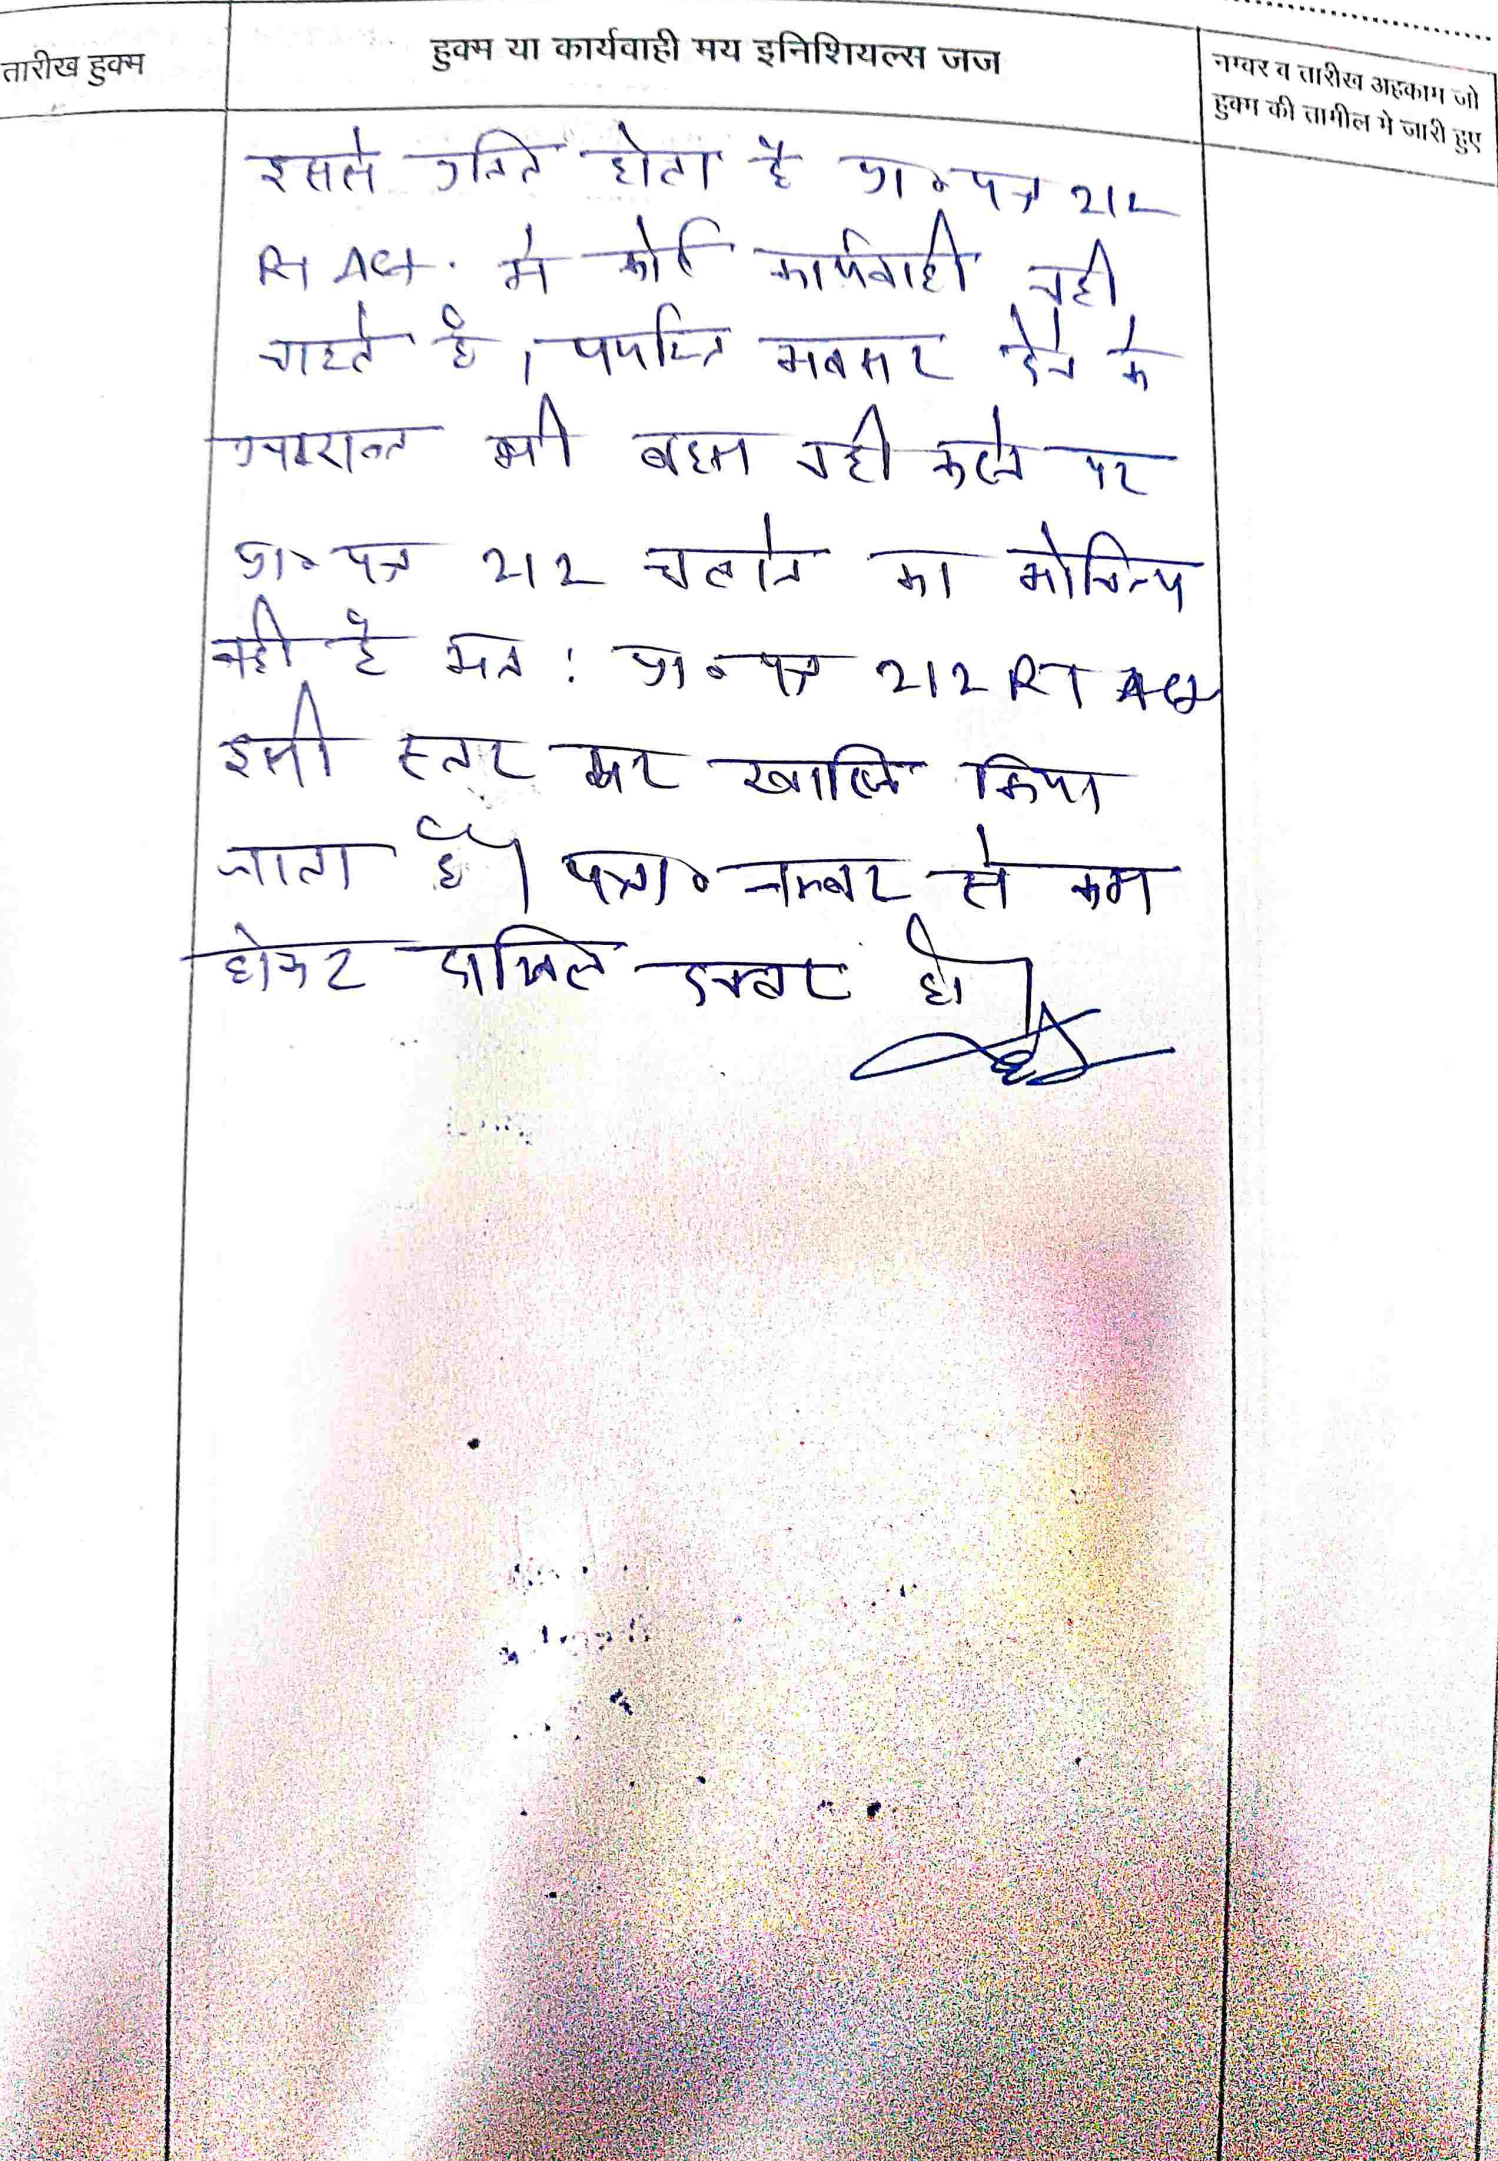 तारीख हुक्म
हुक्म या कार्यवाही मय इनिशियल्स जज
नम्बर व तारीख अहकाम जो
हुक्म की तामील मे जारी हुए
इससे प्रतित होता है प्रा॰पत्र 212
RT Act. मे कोई कार्यवाही नही
चाहते है। पर्याप्त अवसर देने के
उपरान्त भी बहस नही करने पर
प्रा॰ पत्र 212 चलाने का औचित्य
नही है अत: प्रा॰ पत्र 212 RT Act
इसी स्तर पर खारिज किया
जाता है। पत्रा॰ नम्बर से कम
होकर दाखिल दफ्तर हो।